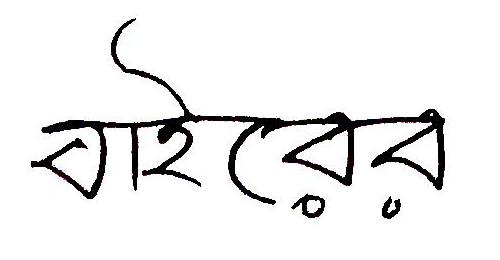 বাইরের